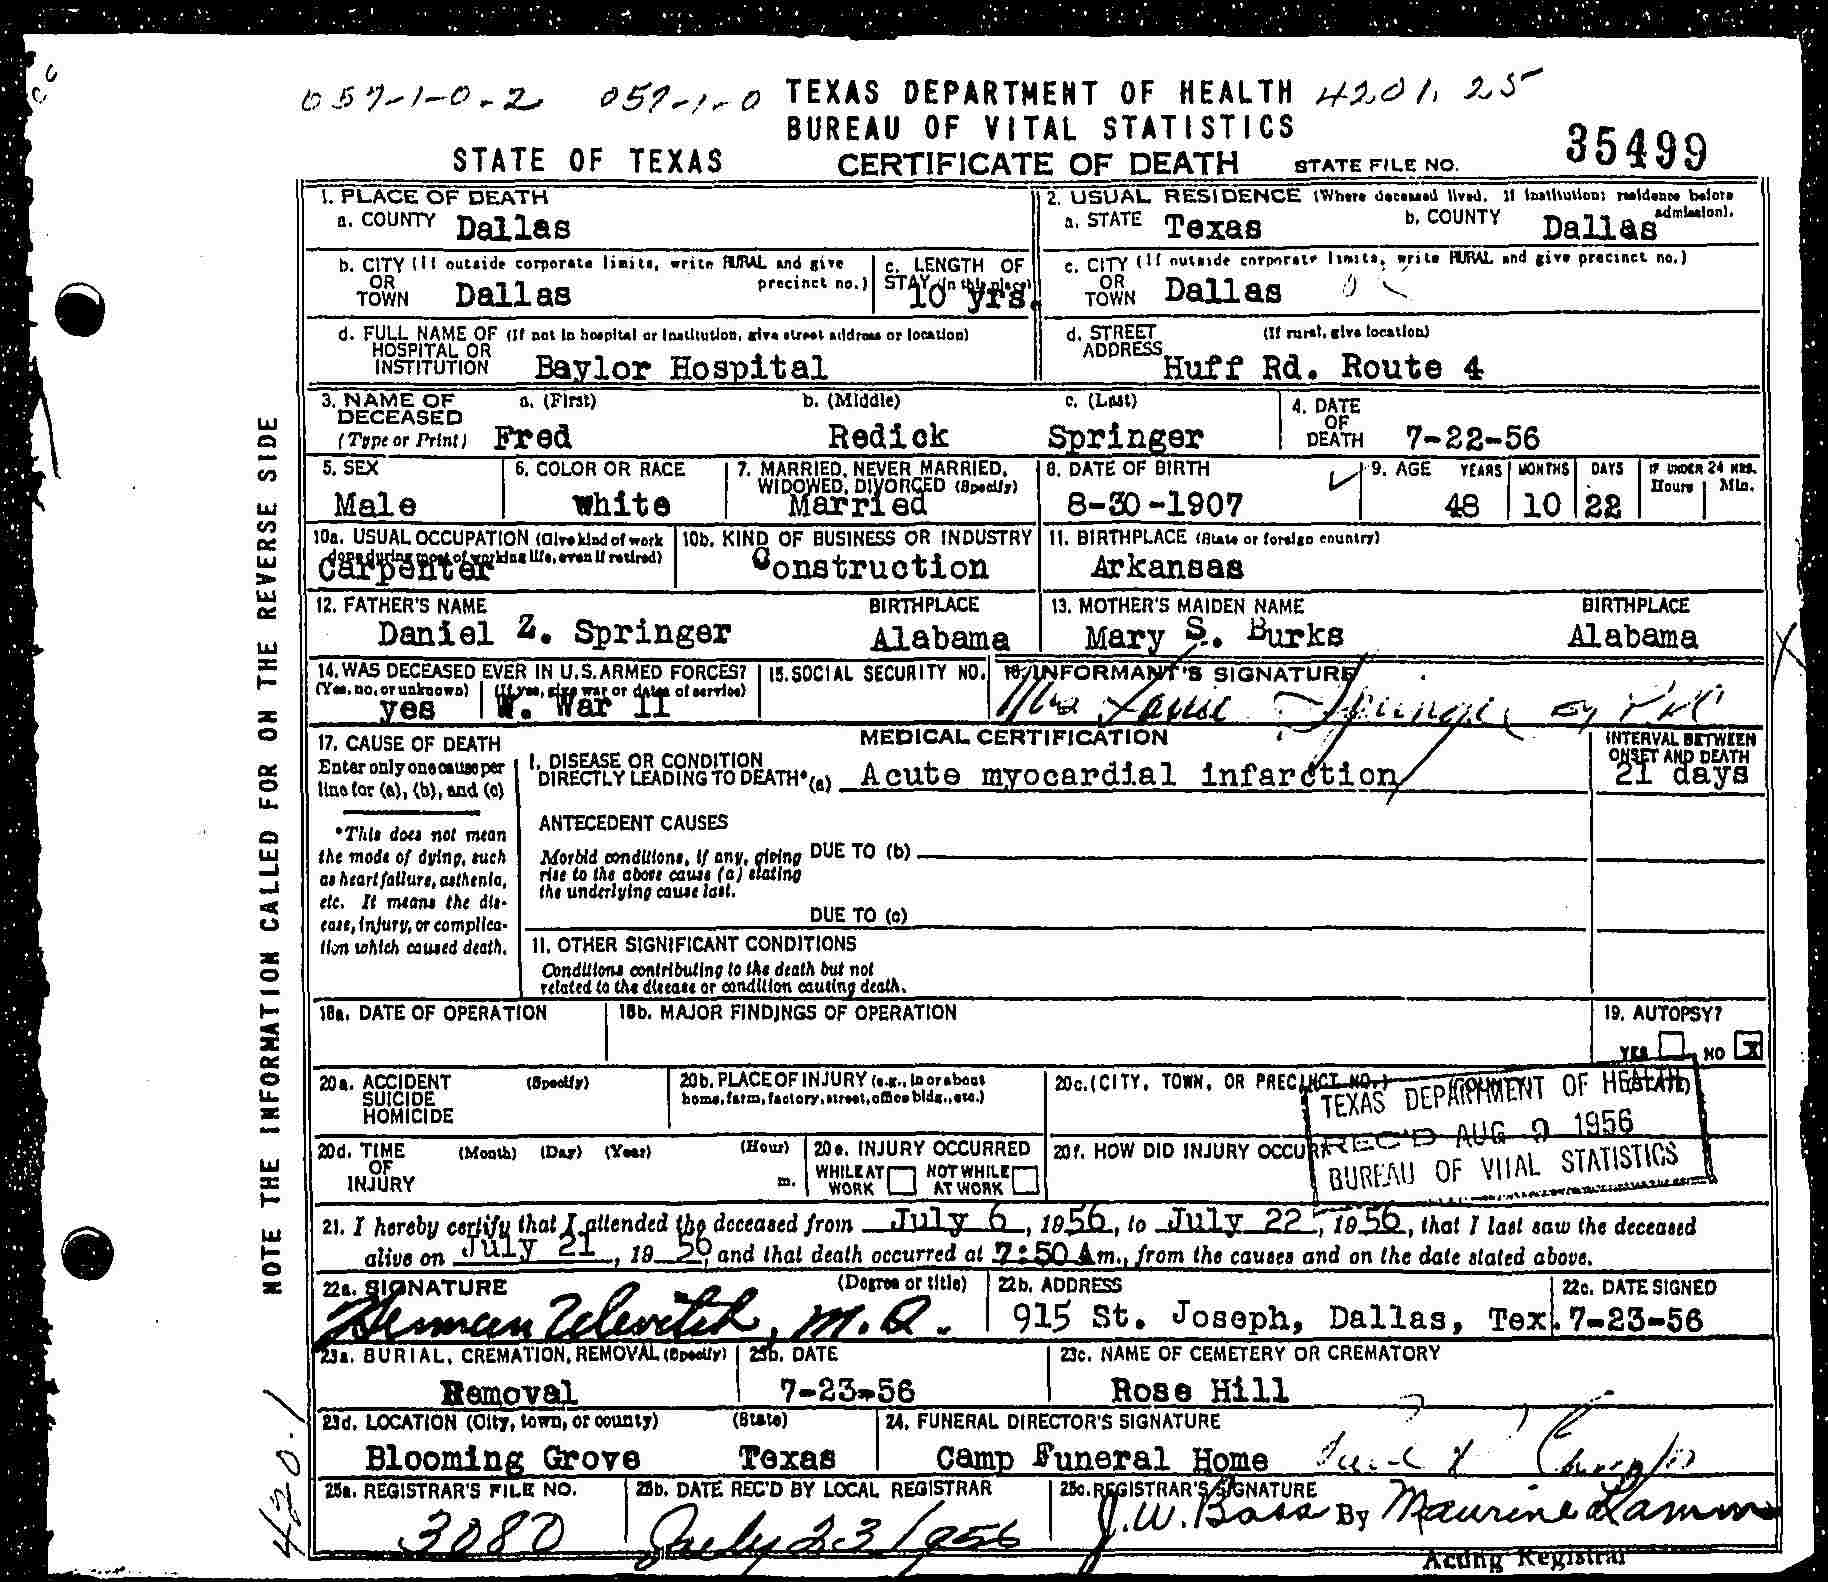 057-1-0-2 057-1-0 TEXAS DEPARTMENT OF HEALTH 4201.25
BUREAU OF VITAL STATISTICS
STATE OF TEXAS CERTIFICATE OF DEATH STATE FILE NO. 35499
1. PLACE OF DEATH
a. COUNTY Dallas
2. USUAL RESIDENCE (Where deceased lived. If institution: residence before admission).
a. STATE Texas b. COUNTY Dallas
b. CITY (If outside corporate limits, write RURAL and give precinct no.)
OR
TOWN Dallas
c. LENGTH OF
STAY (in this place)
10 yrs.
c. CITY (If outside corporate limits, write RURAL and give precinct no.)
OR
TOWN Dallas
d. FULL NAME OF (If not in hospital or institution, give street address or location)
HOSPITAL OR
INSTITUTION Baylor Hospital
d. STREET (If rural, give location)
ADDRESS Huff Rd. Route 4
3. NAME OF a. (First) b. (Middle) c. (Last)
DECEASED
(Type or Print) Fred Redick Springer
4. DATE
OF
DEATH 7-22-56
5. SEX
Male
6. COLOR OR RACE
White
7. MARRIED, NEVER MARRIED,
WIDOWED, DIVORCED (Specify)
Married
8. DATE OF BIRTH
8-30-1907
9. AGE YEARS MONTHS DAYS IF UNDER 24 HRS.
Hours Min.
48 10 22
10a. USUAL OCCUPATION (Give kind of work
done during most of working life, even if retired)
Carpenter
10b. KIND OF BUSINESS OR INDUSTRY
Construction
11. BIRTHPLACE (State or foreign country)
Arkansas
12. FATHER'S NAME BIRTHPLACE
Daniel Z. Springer Alabama
13. MOTHER'S MAIDEN NAME BIRTHPLACE
Mary S. Burks Alabama
14. WAS DECEASED EVER IN U.S. ARMED FORCES?
(Yes, no, or unknown) (If yes, give war or dates of service)
yes W. War II
15. SOCIAL SECURITY NO.
16. INFORMANT'S SIGNATURE
Mrs Springer by
17. CAUSE OF DEATH
Enter only one cause per
line for (a), (b), and (c)
*This does not mean
the mode of dying, such
as heart failure, asthenia,
etc. It means the dis-
ease, injury, or complica-
tion which caused death.
MEDICAL CERTIFICATION
I. DISEASE OR CONDITION
DIRECTLY LEADING TO DEATH* (a) Acute myocardial infarction
INTERVAL BETWEEN
ONSET AND DEATH
21 days
ANTECEDENT CAUSES
Morbid conditions, if any, giving
rise to the above cause (a) stating
the underlying cause last.
DUE TO (b)
DUE TO (c)
II. OTHER SIGNIFICANT CONDITIONS
Conditions contributing to the death but not
related to the disease or condition causing death.
18a. DATE OF OPERATION
18b. MAJOR FINDINGS OF OPERATION
19. AUTOPSY?
YES NO X
20a. ACCIDENT (Specify)
SUICIDE
HOMICIDE
20b. PLACE OF INJURY (e.g., in or about
home, farm, factory, street, office bldg., etc.)
20c. (CITY, TOWN, OR PRECINCT NO.) (COUNTY) (STATE)
TEXAS DEPARTMENT OF HEALTH
REC'D AUG 9 1956
BUREAU OF VITAL STATISTICS
20d. TIME (Month) (Day) (Year) (Hour)
OF
INJURY m.
20e. INJURY OCCURRED
WHILE AT NOT WHILE
WORK AT WORK
20f. HOW DID INJURY OCCUR?
21. I hereby certify that I attended the deceased from July 6, 1956, to July 22, 1956, that I last saw the deceased
alive on July 21, 1956, and that death occurred at 7:50 Am., from the causes and on the date stated above.
22a. SIGNATURE (Degree or title)
Herman Ulevitch, M.D.
22b. ADDRESS
915 St. Joseph, Dallas, Tex.
22c. DATE SIGNED
7-23-56
23a. BURIAL, CREMATION, REMOVAL (Specify)
Removal
23b. DATE
7-23-56
23c. NAME OF CEMETERY OR CREMATORY
Rose Hill
23d. LOCATION (City, town, or county) (State)
Blooming Grove Texas
24. FUNERAL DIRECTOR'S SIGNATURE
Camp Funeral Home
25a. REGISTRAR'S FILE NO.
3080
25b. DATE REC'D BY LOCAL REGISTRAR
July 23 1956
25c. REGISTRAR'S SIGNATURE
J.W. Bass By Maurine Lamm
Acting Registrar
NOTE THE INFORMATION CALLED FOR ON THE REVERSE SIDE
420.1